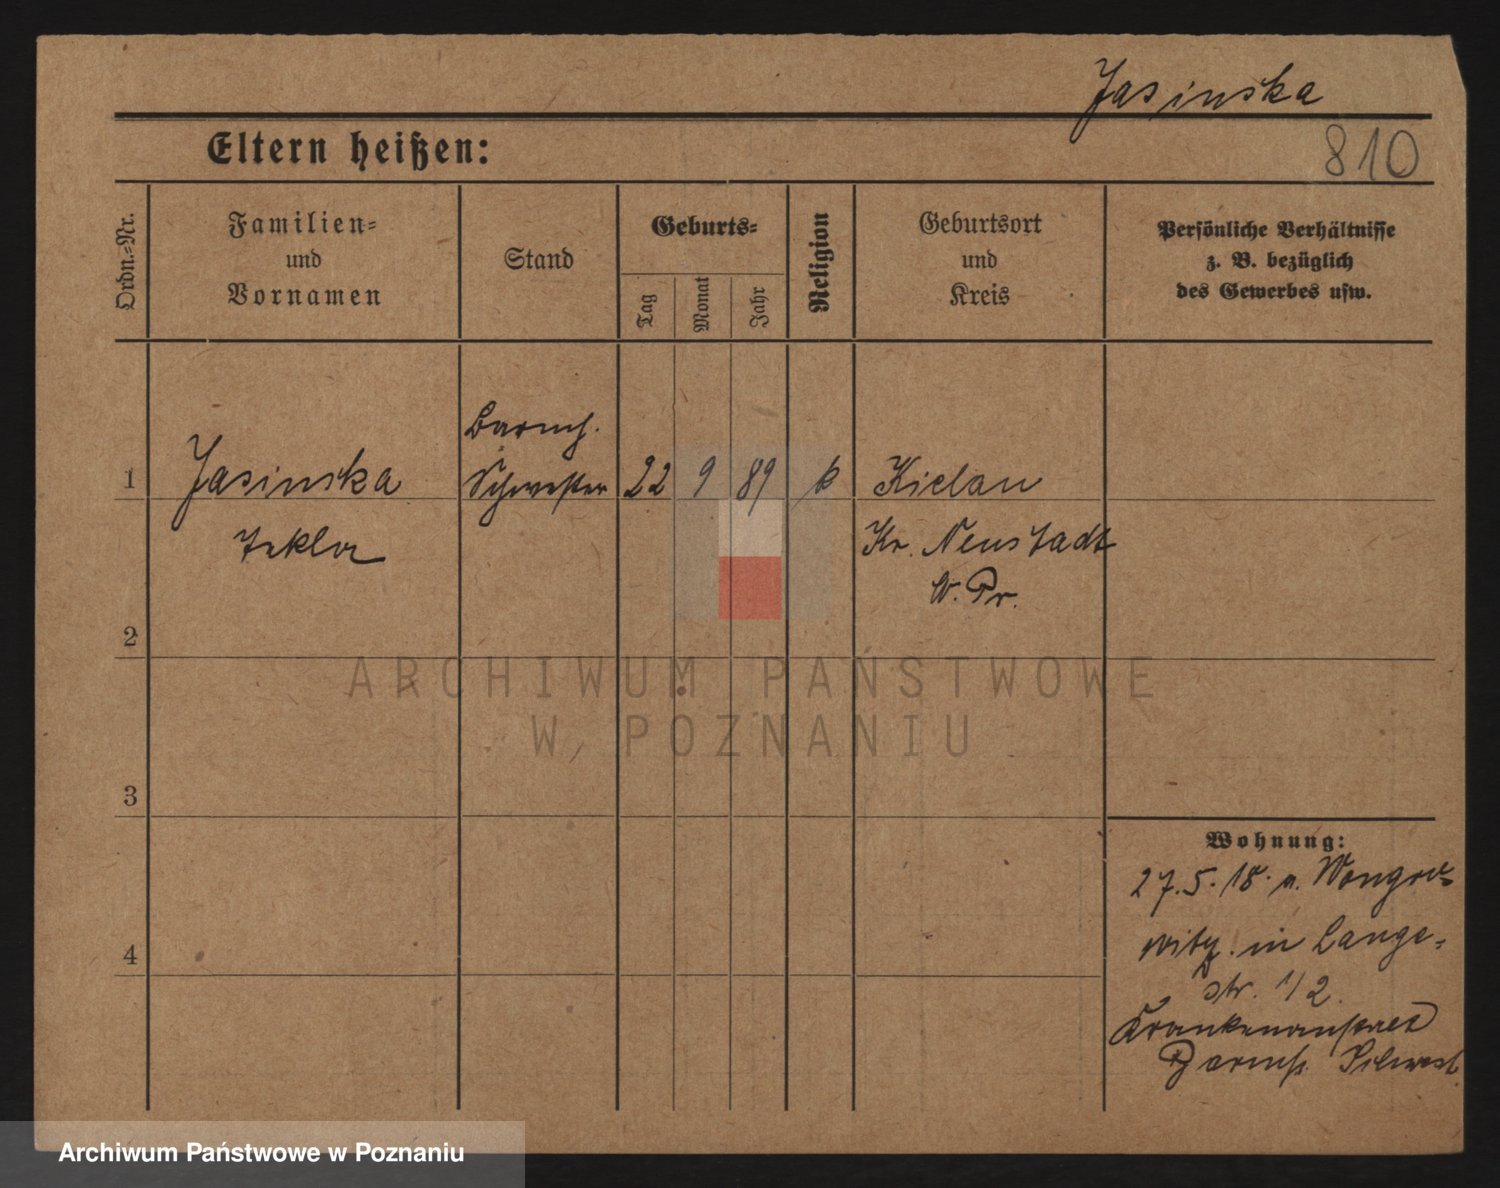 Jasinska
Eltern heißen:
810
Ordn.=Nr.
Familien=
und
Vornamen
Stand
Geburts=
Tag
Monat
Jahr
Religion
Geburtsort
und
Kreis
Persönliche Verhältnisse
z. B. bezüglich
des Gewerbes usw.
Barmh.
1 Jasinska Schwester 22 9 89 k Kielau
Tekla Kr. Neustadt
W. Pr.
2
ARCHIWUM PAŃSTWOWE
W POZNANIU
3
Wohnung:
27.5.18. v. Wongro=
witz. in Lange=
4
str. 1/2.
Krankenanstalt
Barmh. Schwest.
Archiwum Państwowe w Poznaniu